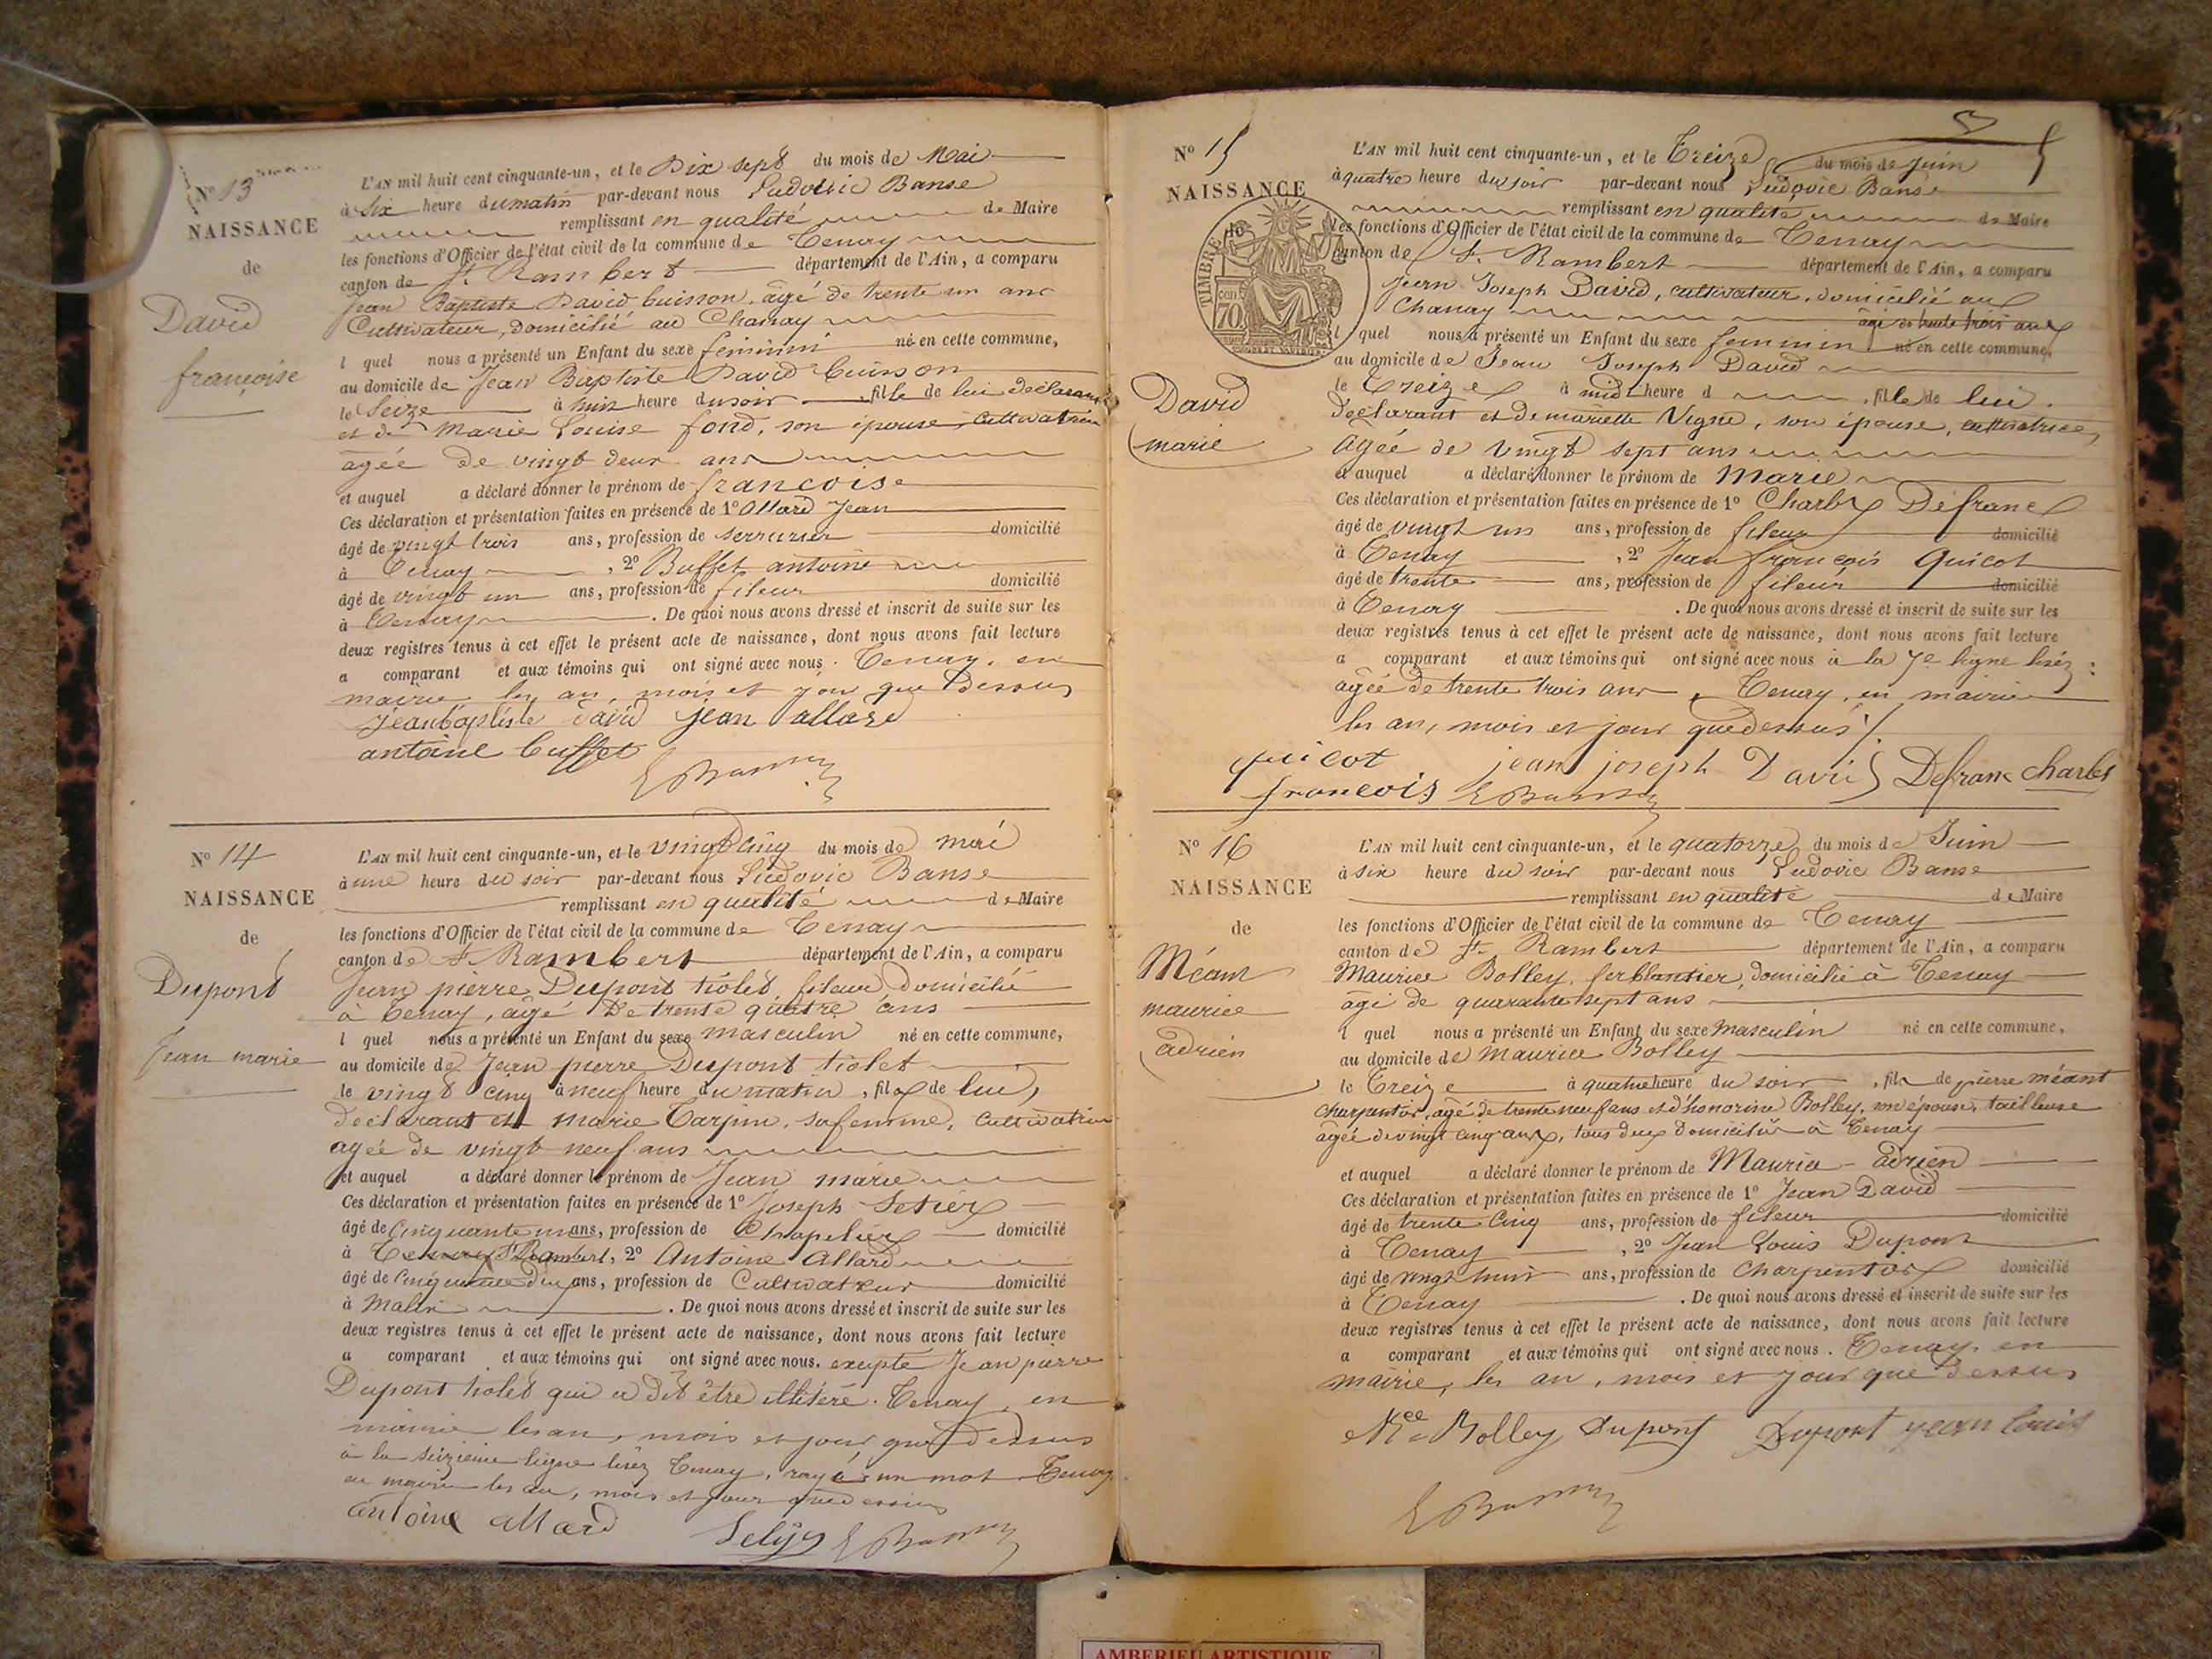 No 13
NAISSANCE
de
David
françoise
L'AN mil huit cent cinquante-un, et le Dix sept du mois de Mai
à Six heure du matin par-devant nous Ludovic Banse
remplissant en qualité de Maire
les fonctions d'Officier de l'état civil de la commune de Tenay
canton de St Rambert département de l'Ain, a comparu
Jean Baptiste David buisson, âgé de trente un ans
Cultivateur, domicilié au Chanay
l quel nous a présenté un Enfant du sexe feminin né en cette commune,
au domicile de Jean Baptiste David buisson
le Seize à huit heure du soir fille de lui déclarant
et de Marie Louise fond, son épouse, Cultivatrice
agée de vingt deux ans
et auquel a déclaré donner le prénom de francoise
Ces déclaration et présentation faites en présence de 1° Allard Jean
âgé de vingt trois ans, profession de serrurier domicilié
à Tenay , 2° Buffet antoine
âgé de vingt un ans, profession de fileur domicilié
à Tenay . De quoi nous avons dressé et inscrit de suite sur les
deux registres tenus à cet effet le présent acte de naissance, dont nous avons fait lecture
a comparant et aux témoins qui ont signé avec nous. Tenay, en
mairie les an, mois et jour que Dessus
jeanbaptiste david jean allard
antoine buffet
L Banse
No 14
NAISSANCE
de
Dupont
Jean marie
L'AN mil huit cent cinquante-un, et le vingt Cinq du mois de mai
à une heure du soir par-devant nous Ludovic Banse
remplissant en qualité de Maire
les fonctions d'Officier de l'état civil de la commune de Tenay
canton de St Rambert département de l'Ain, a comparu
Jean pierre Dupont tiolet fileur domicilié
à Tenay, âgé De trente quatre ans
l quel nous a présenté un Enfant du sexe masculin né en cette commune,
au domicile de Jean pierre Dupont tiolet
le vingt cinq à neuf heure du matin , fils de lui,
déclarant et marie Carpin, sa femme, Cultivatrice
agée de vingt neuf ans
et auquel a déclaré donner le prénom de Jean marie
Ces déclaration et présentation faites en présence de 1° Joseph
âgé de Cinquante un ans, profession de Chapelier domicilié
à Tenay St Rambert, 2° Antoine Allard
âgé de Cinquante deux ans, profession de Cultivateur domicilié
à . De quoi nous avons dressé et inscrit de suite sur les
deux registres tenus à cet effet le présent acte de naissance, dont nous avons fait lecture
a comparant et aux témoins qui ont signé avec nous. excepté Jean pierre
Dupont tiolet qui a dit être illitéré. Tenay, en
mairie les an, mois et jour que dessus
à la seizieme ligne lisez Tenay, rayé un mot Tenay
en mairie les an, mois et jour que dessus
antoine allard L Banse
No 15
NAISSANCE
TIMBRE
70
David
marie
5
L'AN mil huit cent cinquante-un, et le Treize du mois de Juin
à quatre heure du soir par-devant nous Ludovic Banse
remplissant en qualité de Maire
les fonctions d'Officier de l'état civil de la commune de Tenay
canton de St Rambert département de l'Ain, a comparu
Jean Joseph David, cultivateur, domicilié au
Chanay âgé de trente trois ans
l quel nous a présenté un Enfant du sexe feminin né en cette commune,
au domicile de Jean Joseph David
le Treize à midi heure d , fille de lui.
déclarant et de mariette Vigne, son épouse, cultivatrice,
agée de vingt sept ans
et auquel a déclaré donner le prénom de Marie
Ces déclaration et présentation faites en présence de 1° Charles Défranc
âgé de vingt un ans, profession de fileur domicilié
à Tenay , 2° Jean françois Quicot
âgé de trente ans, profession de fileur domicilié
à Tenay . De quoi nous avons dressé et inscrit de suite sur les
deux registres tenus à cet effet le présent acte de naissance, dont nous avons fait lecture
a comparant et aux témoins qui ont signé avec nous à la 7e ligne lisez:
agée de trente trois ans, Tenay, en mairie
les an, mois et jour que dessus
quicot jean joseph David Défranc charles
francois L Banse
No 16
NAISSANCE
de
Méant
maurice
adrien
L'AN mil huit cent cinquante-un, et le quatorze du mois de Juin
à six heure du soir par-devant nous Ludovic Banse
remplissant en qualité de Maire
les fonctions d'Officier de l'état civil de la commune de Tenay
canton de St Rambert département de l'Ain, a comparu
Maurice Bolley, ferblantier, domicilié à Tenay
âgé de quarante sept ans
l quel nous a présenté un Enfant du sexe Masculin né en cette commune,
au domicile de Maurice Bolley
le Treize à quatre heure du soir , fils de pierre méant
charpentier, âgé de trente neuf ans et d'honorine Bolley, son épouse, tailleuse
âgée de vingt cinq ans, tous deux Domiciliés à Tenay
et auquel a déclaré donner le prénom de Maurice - adrien
Ces déclaration et présentation faites en présence de 1° Jean David
âgé de trente Cinq ans, profession de fileur domicilié
à Tenay , 2° Jean Louis Dupont
âgé de vingt huit ans, profession de charpentier domicilié
à Tenay . De quoi nous avons dressé et inscrit de suite sur les
deux registres tenus à cet effet le présent acte de naissance, dont nous avons fait lecture
a comparant et aux témoins qui ont signé avec nous. Tenay, en
mairie, les an, mois et jour que dessus
Mce Bolley Dupont Dupont jean louis
L Banse
AMBERIEU ARTISTIQUE